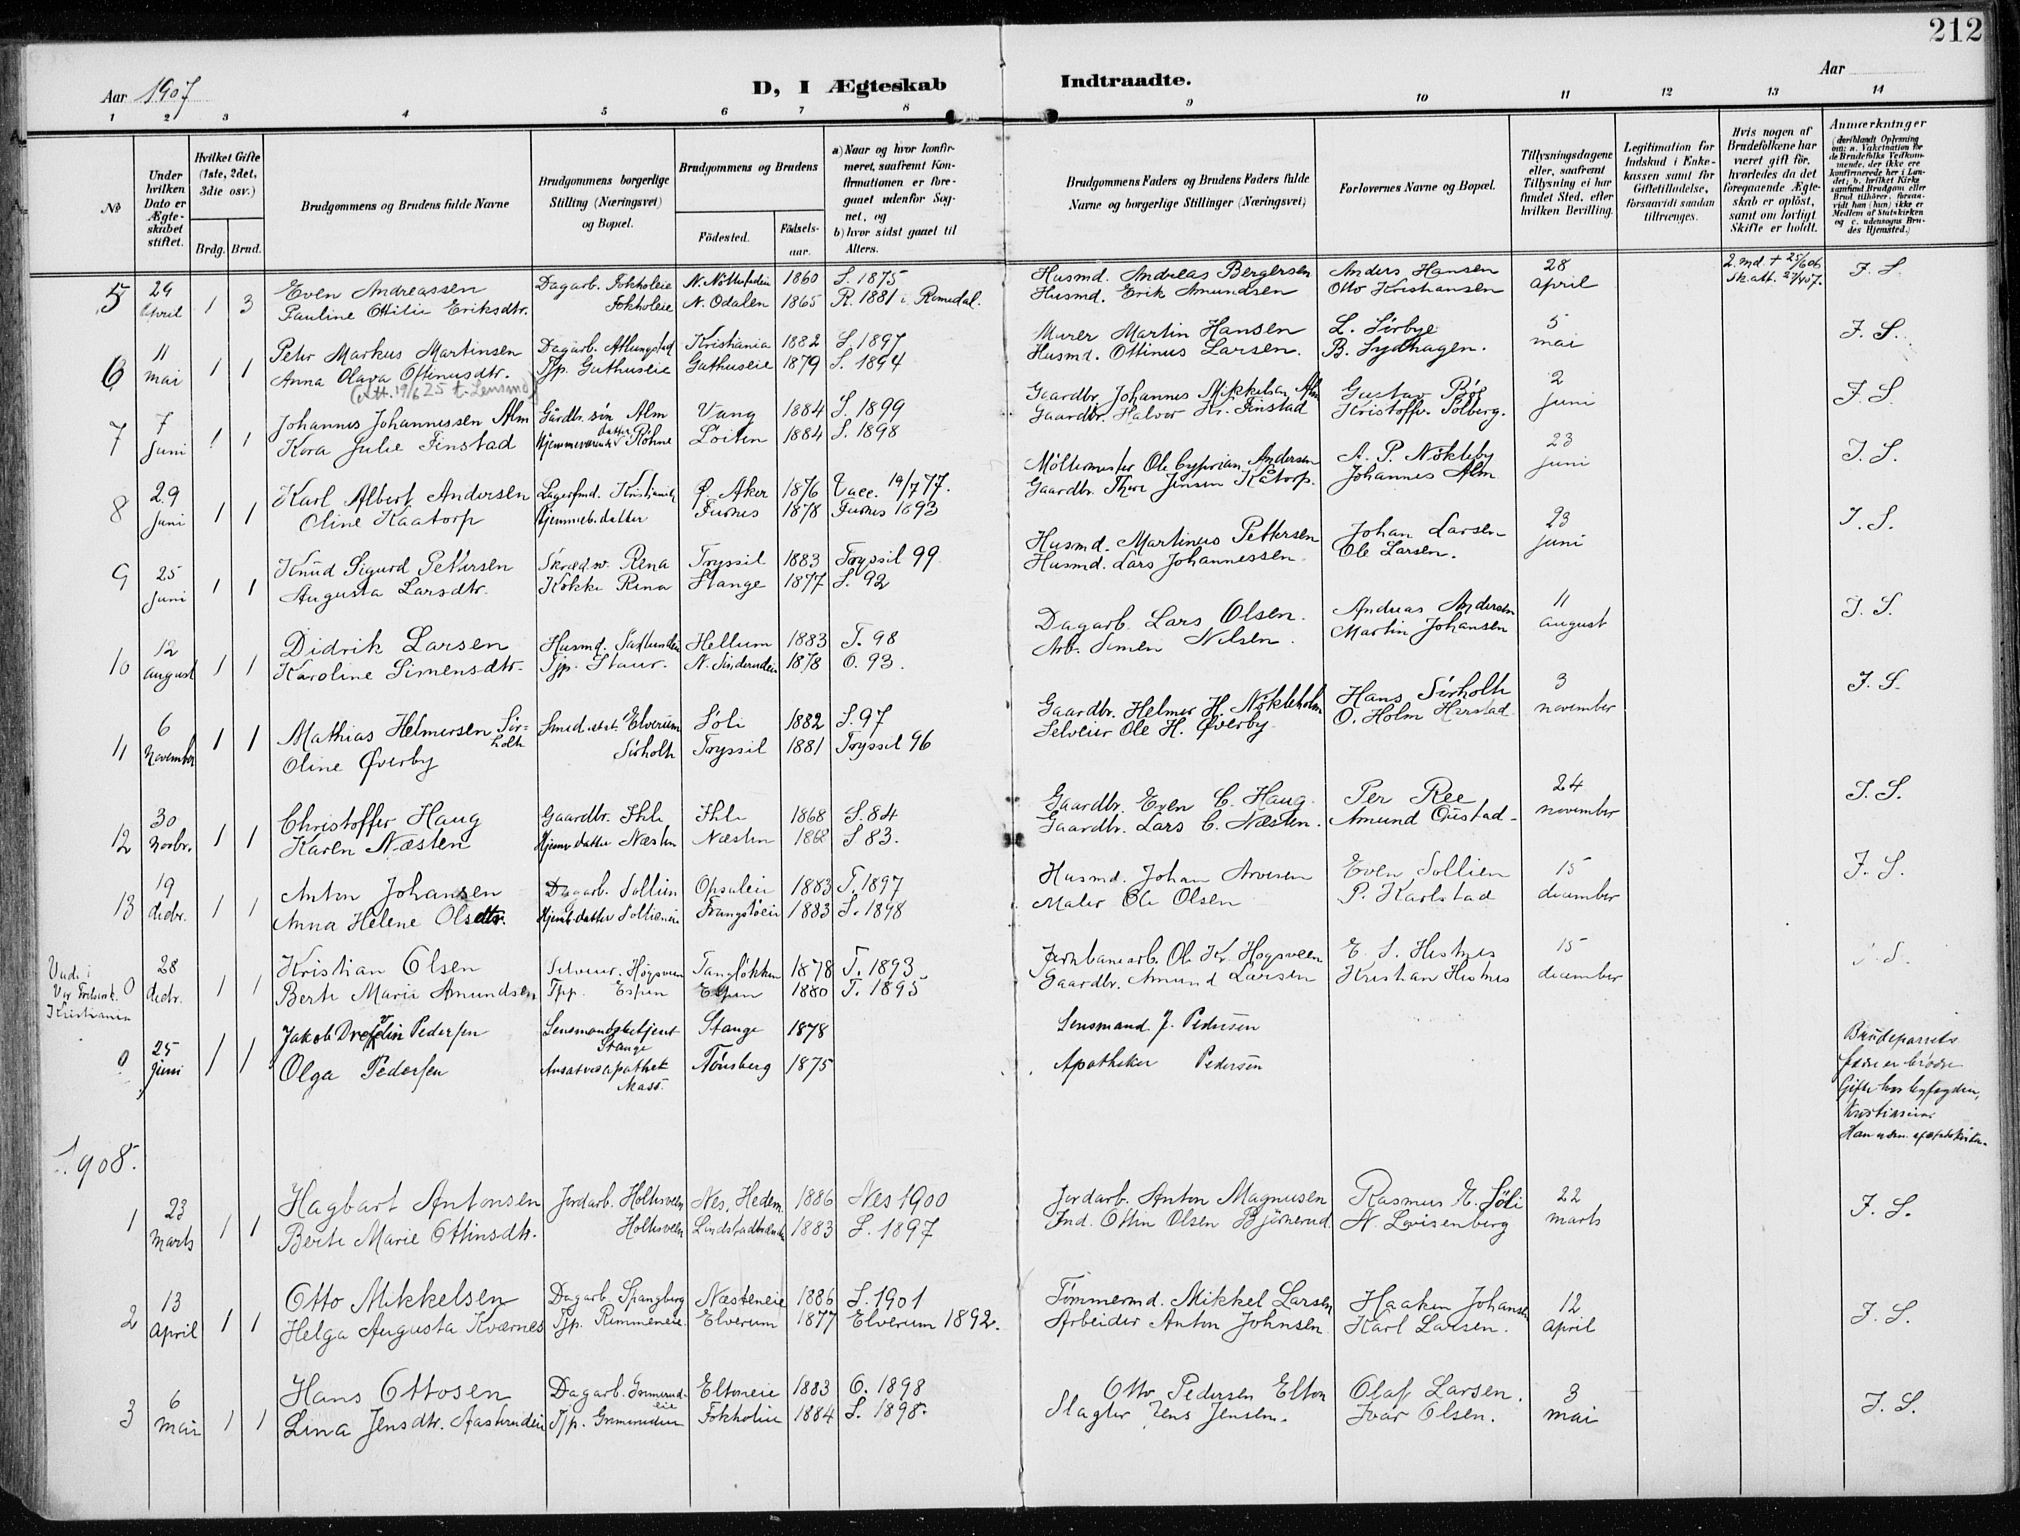 212
Aar 1907
D, I Ægteskab Indtraadte.
Aar
1 2 3 4 5 6 7 8 9 10 11 12 13 14
№
Under hvilken Dato er Ægteskabet stiftet.
Hvilket Gifte (1ste, 2det, 3die osv.)
Brdg. Brud.
Brudgommens og Brudens fulde Navne
Brudgommens borgerlige Stilling (Næringsvei) og Bopæl.
Brudgommens og Brudens
Födested. Födselsaar.
a) Naar og hvor konfirmeret, saafremt Konfirmationen er foregaaet udenfor Sognet, og
b) hvor sidst gaaet til Alters.
Brudgommens Faders og Brudens Faders fulde Navne og borgerlige Stillinger (Næringsvei)
Forlovernes Navne og Bopæl.
Tillysningsdagene eller, saafremt Tillysning ei har fundet Sted, efter hvilken Bevilling.
Legitimation for Indskud i Enkekassen samt for Giftetilladelse, forsaavidt saadan tiltrænges.
Hvis nogen af Brudefolkene har været gift før, hvorledes da det foregaaende Ægteskab er oplöst, samt om lovligt Skifte er holdt.
Anmærkninger
(deriblandt Oplysning om: a. Vakcination for de Brudefolks Vedkommende, der ikke ere konfirmerede her i Landet; b. hvilket Kirkesamfund Brudgom eller Brud tilhörer, forsaavidt han (hun) ikke er Medlem af Statskirken og c. udensogns Brudes Hjemsted.)
5 29 April 1 3 Even Andreassen Dagarb. Fokholeie N. Nøttestadeie 1860 S. 1875 Husmd. Andreas Bergersen Anders Hansen 28 april 2. md + 25/6 06 J. S.
Pauline Otilie Eriksdtr. Fokholeie N. Odalen 1865 R. 1881 i Romedal. Husmd. Erik Amundsen Otto Kristiansen Sk.att. 27/4 07.
6 11 mai 1 1 Peter Markus Martinsen Dagarb. Atlungstad Kristiania 1882 S. 1897 Murer Martin Hansen L. Sørbye 5 mai J. S.
Anna Olava Ottinusdtr. Tjp. Guthuseie Guthuseie 1879 S. 1894 Husmd. Ottinus Larsen. B. Sydhagen.
(Att. 19/6 25 t. Lensmd)
7 7 Juni 1 1 Johannes Johannessen Alm Gårdbr. søn Alm Vang 1884 S. 1899 Gaardbr. Johannes Mikkelsen Alm Gustav Bøe 2 juni J. S.
Kora Julie Finstad Hjemmeværende datter Røhne Løiten 1884 S. 1898 Gaardbr. Halvor Kr. Finstad Kristoffer Solberg.
8 29 juni 1 1 Karl Albert Andersen Lagerfmd. Kristiania Ø. Aker 1876 Vacc. 19/7 77. Møllemester Ole Cyprian Andersen A. P. Nøkleby 23 juni J. S.
Oline Kaatorp Hjemmeb. datter Furnes 1878 Furnes 1893 Gaardbr. Thore Jensen Kåtorp. Johannes Alm
9 25 juni 1 1 Knud Sigurd Pettersen Skrædsv. Rena Trysil 1883 Trysil 99 Husmd. Martinus Pettersen Johan Larsen 23 juni J. S.
Augusta Larsdtr. Kokke Rena Stange 1877 S. 92 Husmd. Lars Johannessen. Ole Larsen.
10 12 august 1 1 Didrik Larsen Husmd. Hellum 1883 T. 98 Dagarb. Lars Olsen. Andreas Andersen 11 august J. S.
Karoline Simensdtr. Tjp. Staur. 1878 O. 93. Arb. Simen Nilsen. Martin Johansen
11 6 November 1 1 Mathias Helmersen Sørholth Smed Elverum Søli 1882 S. 97 Gaardbr. Helmer H. Nøkleholm Hans Sørholth 3 november J. S.
Oline Øverby Sørholth Tryssil 1881 Tryssil 96 Selveier Ole H. Øverby. O. Holm Harstad
12 30 Novbr. 1 1 Christoffer Haug Gaardbr. Ihle Ihle 1868 S. 84 Gaardbr. Even C. Haug. Per Ree 24 november J. S.
Karen Næsten Hjemv. datter Næsten Næsten 1868 S 83. Gaardbr. Lars C. Næsten. Amund Oustad
13 19 decbr. 1 1 Anton Johansen Dagarb. Sollien Opsaleie 1883 T. 1897 Husmd. Johan Arvesen Even Sollien 15 december J. S.
Anna Helene Olsdtr. Hjemb. datter Sollieneie Frangstøeie 1883 S. 1898 Maler Ole Olsen P. Karlstad
Viede i Vor Frelsersk. Kristiania 0 28 decbr. 1 1 Kristian Olsen Selveier. Høgsveen Tangløkken 1878 T. 1893 Jernbanearb. Ole Kr. Hogsveen E. S. Hestnes 15 december J. S.
Berte Marie Amundsen Tjp. Espen Espen 1880 T. 1895 Gaardbr. Amund Larsen Kristian Hestnes
0 25 juni 1 1 Jakob Pedersen Lensmandsbetjent Stange Stange 1878 Lensmand J. Pedersen Brudeparrets fædre er brødre
Olga Pedersen Apothek Mass. Tønsberg 1875 Apotheker Pedersen Gifte hos byfogden, Kristiania
Han udm. af statskirken
1908.
1 23 Marts 1 1 Hagbart Antonsen Jordarb. Holtsveen Nes, Hedem. 1886 Næs 1900 Jordarb. Anton Magnusen Rasmus E. Søli 22 marts J. S.
Berte Marie Ottinsdtr. Holtsveen 1883 S. 1897 Ind. Ottin Olsen Bjørnerud N. Lovisenberg
2 13 April 1 1 Otto Mikkelsen Dagarb. Spangberg Næsteneie 1886 S. 1901 Tømmermd. Mikkel Larsen Haaken Johansen 12 april J. S.
Helga Augusta Kværnes Tjp. Rommeneie. Elverum 1877 Elverum 1892. Arbeider Anton Johnsen Karl Larsen.
3 6 mai 1 1 Hans Ottosen Dagarb. Grimerudeie Eltoneie 1883 O. 1898 Otto Pedersen Elton Olaf Larsen. 3 mai J. S.
Lina Jensdtr. Aasterudeie Tjp. Grimerudeie Fokholeie 1884 S. 1898. Slagter Jens Jensen. Ivar Olsen.